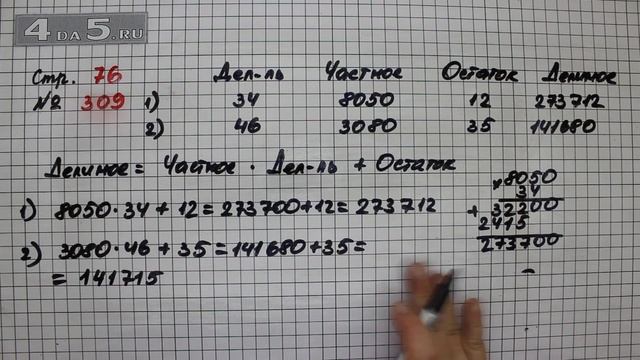 4DA5.RU
Стр. 76 Дел-ль Частное Остаток Делимое
№ 309 1) 34 8050 12 273712
2) 46 3080 35 141680
Делимое = Частное · Дел-ль + Остаток
1) 8050·34 + 12 = 273700+12 = 273712
2) 3080·46 + 35 = 141680+35 =
= 141715
× 8050
34
+ 32200
2415
273700